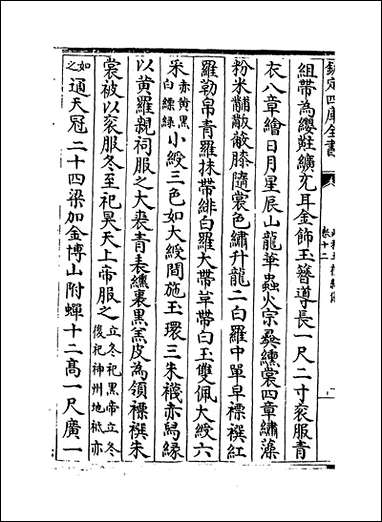 欽定四庫全書
卷十二
組帶為纓黈纊充耳金飾玉簪導長一尺二寸衮服青
衣八章繪日月星辰山龍華蟲火宗彞纁裳四章繡藻
粉米黼黻蔽膝隨裳色繡升龍二白羅中單皁褾襈紅
羅勒帛青羅抹帶緋白羅大帶革帶白玉雙佩大綬六
采赤黃黑白縹綠小綬三色如大綬間施玉環三朱襪赤舄緣
以黃羅親祠服之大裘青表纁裏黑羔皮為領褾襈朱
裳被以衮服冬至祀昊天上帝服之立冬祀黑帝立冬後祀神州地祗亦
如之通天冠二十四梁加金博山附蟬十二高一尺廣一